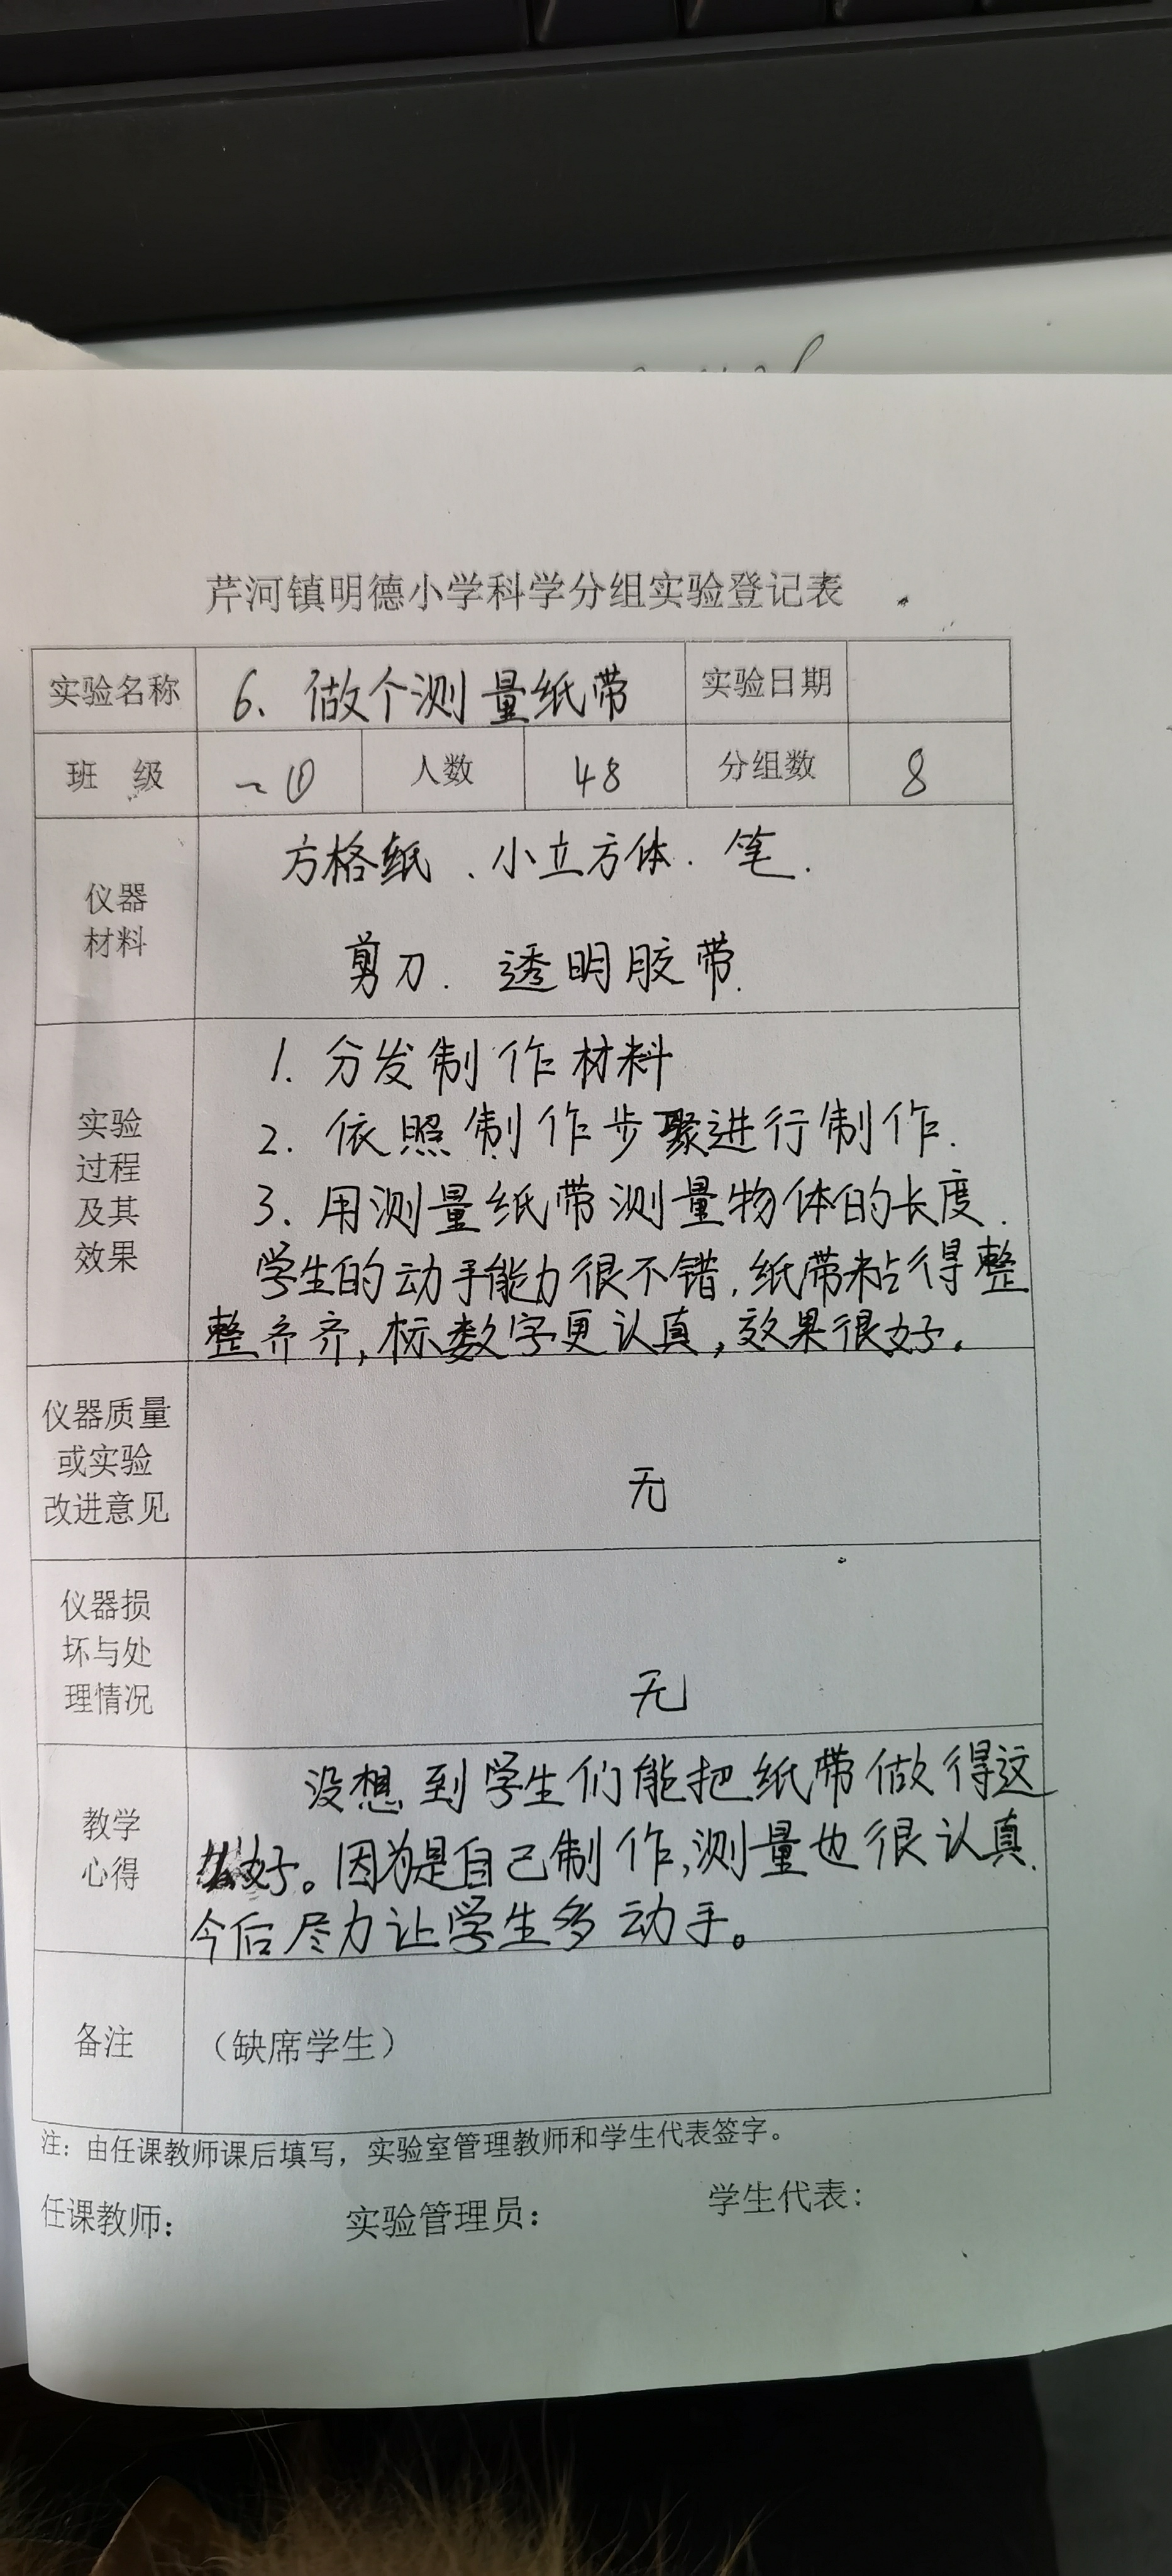 芹河镇明德小学科学分组实验登记表
实验名称 6、做个测量纸带 实验日期
班 级 一① 人数 48 分组数 8
仪器
材料
方格纸、小立方体. 笔.
剪刀. 透明胶带.
实验
过程
及其
效果
1. 分发制作材料
2. 依照制作步聚进行制作.
3、用测量纸带测量物体的长度.
学生的动手能力很不错,纸带粘得整
整齐齐,标数字更认真,效果很好。
仪器质量
或实验
改进意见
无
仪器损
坏与处
理情况
无
教学
心得
没想到学生们能把纸带做得这
么好。因为是自己制作,测量也很认真.
今后尽力让学生多动手。
备注
（缺席学生）
注：由任课教师课后填写，实验室管理教师和学生代表签字。
任课教师： 实验管理员： 学生代表：